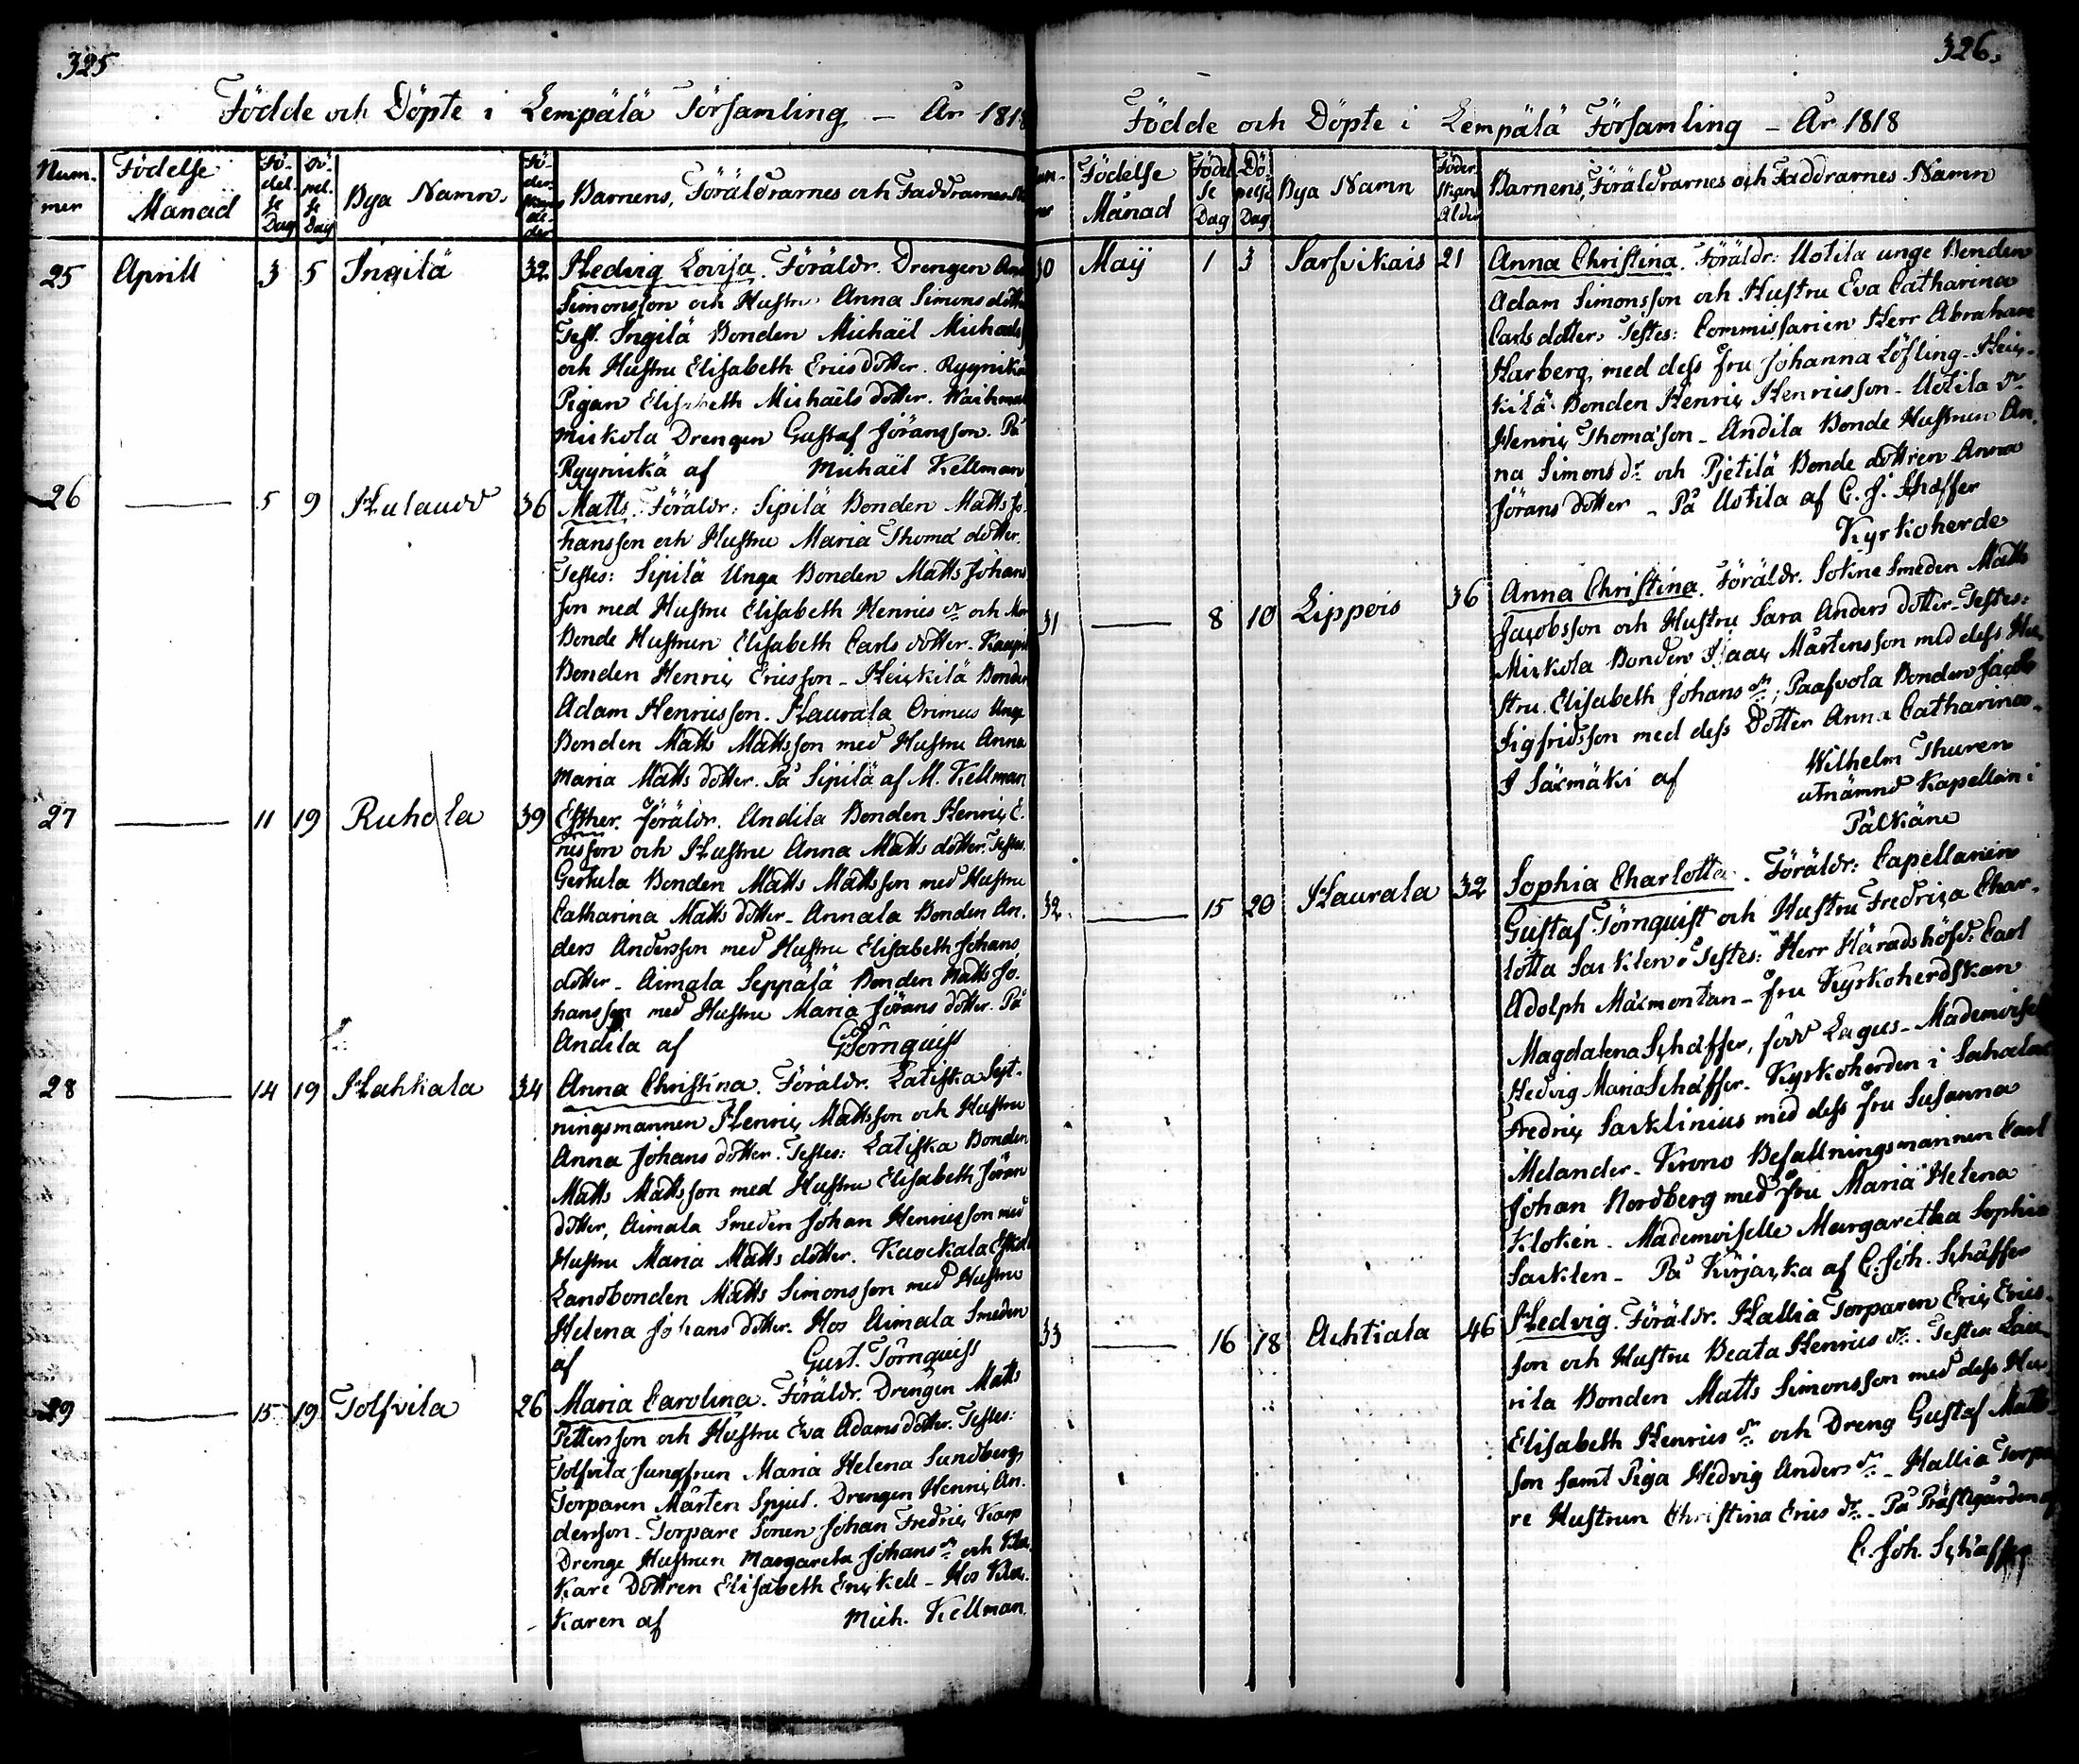 325
Födde och Döpte i Lempälä Församling – År 1818
Nummer Födelse Månad Födelse Dag Döpelse Dag Bya Namn. Föderskans ålder Barnens, Föräldrarnes och Faddrarnes
25 Aprill 3 5 Ingilä 32 Hedvig Lovisa. Föräldr. Drengen And
Simonsson och Hustru Anna Simons dotter
Test. Ingilä Bonden Michaël Michaels
och Hustru Elisabeth Erics dotter. Ryynikä
Pigan Elisabeth Michaëls dotter. Waihmal
Mickola Drengen Gustaf Jöransson. På
Ryynikä af Michaël Kellman
26 —— 5 9 Hulaud 36 Matts. Föräldr: Sipilä Bonden Matts Jo-
hansson och Hustru Maria Thomæ dotter.
Testes: Sipilä Unga Bonden Matts Johans
son med Hustru Elisabeth Henrics dr och
Bonde Hustrun Elisabeth Carls dotter. Kauppi
Bonden Henric Ericsson – Heickilä Bonden
Adam Henricsson. Haurala Orimus Unge
Bonden Matts Mattsson med Hustru Anna
Maria Matts dotter. På Sipilä af M. Kellman
27 —— 11 19 Ruhola 39 Esther. Föräldr. Andila Bonden Henric E-
ricsson och Hustru Anna Matts dotter. Testes.
Gerkula Bonden Matts Mattsson med Hustru
Catharina Matts dotter – Annala Bonden An-
ders Andersson med Hustru Elisabeth Johans
dotter – Aimala Seppälä Bonden Matts Jo-
hansson med Hustru Maria Jörans dotter. På
Andila af GTörnquist
28 —— 14 19 Hahkala 34 Anna Christina. Föräldr. Latiska Syt-
ningsmannen Henric Mattsson och Hustru
Anna Johans dotter. Testes: Latiska Bonden
Matts Mattsson med Hustru Elisabeth Jöran
dotter, Aimala Smeden Johan Henricsson med
Hustru Maria Matts dotter. Kuockala
Landbonden Matts Simonsson med Hustru
Helena Johans dotter. Hos Aimala Smeden
af Gust. Törnquist
29 —— 15 19 Tolfvila 26 Maria Carolina. Föräldr. Drengen Matts
Pettersson och Hustru Eva Adams dotter. Testes:
Tolfvila Jungfrun Maria Helena Sundberg
Torparen Mårten Spjut. Drengen Henric An-
dersson – Torpare Sonen Johan Fredric Karp
Drenge Hustrun Margareta Johans dr och Kloc-
kare Dottren Elisabeth Enckell – Hos Kloc-
karen af Mich. Kellman
326.
Födde och Döpte i Lempälä Församling – År 1818
Födelse Månad Födelse Dag Döpelse Dag Bya Namn Föderskans Ålder Barnens, Föräldrarnes och Faddrarnes Namn
30 Maij 1 3 Sarfvikais 21 Anna Christina. Föräldr: Uotila unge Bonden
Adam Simonsson och Hustru Eva Catharina
Carls dotter. Testes: Commissarien Herr Abraham
Harberg, med dess fru Johanna Löfling – Heic-
kilä Bonden Henric Henricsson – Uotila dr
Henric Thomasson – Andila Bonde Hustrun An-
na Simons dr och Pjetilä Bonde dottren Anna
Jörans dotter – På Uotila af C. J. Schæffer
Kyrkoherde
31 —— 8 10 Lippois 36 Anna Christina. Föräldr. Sokne Smeden Matts
Jacobsson och Hustru Sara Anders dotter – Testes:
Mickola Bonden Isaac Mårtensson med dess Hu-
stru Elisabeth Johans dr; Paafvola Bonden Jacob
Sigfridsson med dess Dotter Anna Catharina.
I Säxmäki af Wilhelm Thuren
utnämnd Kapellan i
Pälkäne
32. —— 15 20 Haurala 32 Sophia Charlotta. Föräldr: Capellanen
Gustaf Törnquist och Hustru Fredrica Char-
lotta Sacklen. Testes: Herr Häradshöfd: Carl
Adolph Maxmontan – fru Kyrkoherdskan
Magdalena Schæffer, född Lagus – Mademoisel
Hedvig Maria Schæffer – Kyrkoherden i Sahalax
Fredric Sacklinius med dess fru Susanna
Melander – Krono Befallningsmannen Carl
Johan Nordberg med fru Maria Helena
Kloken – Mademoiselle Margaretha Sophia
Sacklen – På Kirjaska af C. Joh. Schäffer
33 —— 16 18 Achtiala 46 Hedvig. Föräldr. Hallia Torparen Eric Erics-
son och Hustru Beata Henrics dr. Testes: Lau-
rila Bonden Matts Simonsson med dess Hu
Elisabeth Henrics dr och Dreng Gustaf Matts-
son samt Piga Hedvig Anders dr – Hallia Torpa-
re Hustrun Christina Erics dr – På Prästgården af
C. Joh. Schäffer